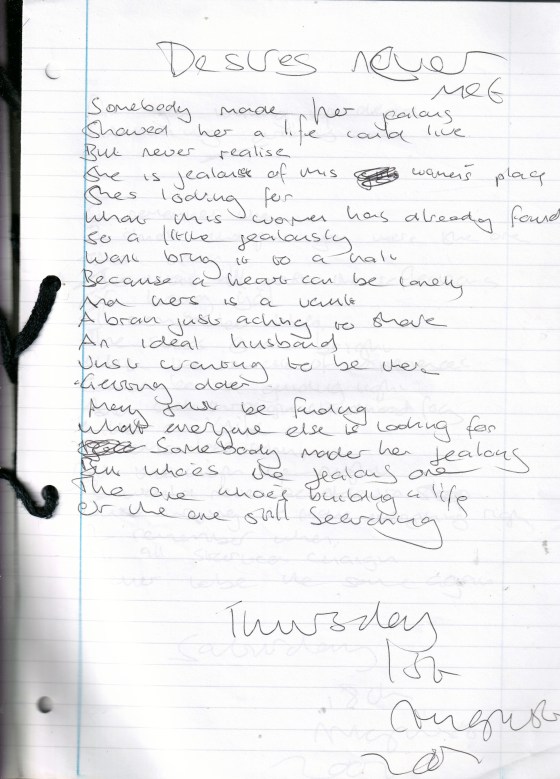 Desires never
met
Somebody made her jealous
Showed her a life could live
But never realise
She is jealous of this women's place
Shes looking for
what this women has already found
so a little jealousy
wont bring it to a halt
Because a heart can be lonely
And hers is a
A brain just aching to share
An ideal husband
Just wanting to be there
Getting older
May just be finding
what everyone else is looking for
Somebody made her jealous
But whoes the jealous one
The one whoes building a life
or the one still searching
Thursday
1st
August